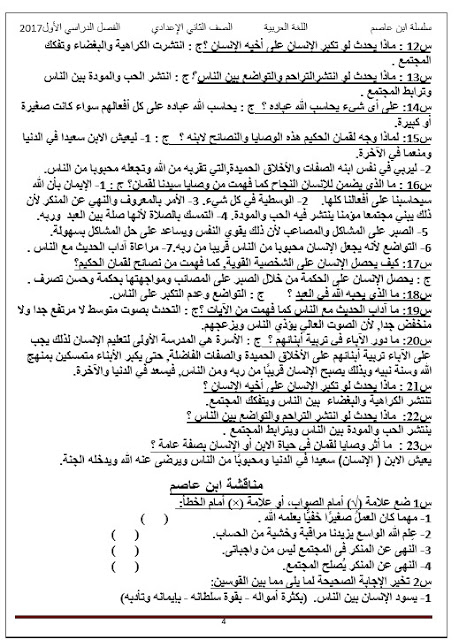 سلسلة ابن عاصم اللغة العربية الصف الثاني الإعدادي الفصل الدراسي الأول2017
س12 : ماذا يحدث لو تكبر الإنسان على أخيه الإنسان ؟ج : انتشرت الكراهية والبغضاء وتفكك
المجتمع .
س13 : ماذا يحدث لو انتشرالتراحم والتواضع بين الناس؟ج : انتشر الحب والمودة بين الناس
وترابط المجتمع .
س14: على أى شىء يحاسب الله عباده ؟ ج : يحاسب الله عباده على كل أفعالهم سواء كانت صغيرة
أو كبيرة.
س15: لماذا وجه لقمان الحكيم هذه الوصايا والنصائح لابنه ؟ ج : 1- ليعيش الابن سعيدا في الدنيا
ومنعما في الآخرة.
2- ليربي في نفس ابنه الصفات والأخلاق الحميدة,التي تقربه من الله وتجعله محبوبا من الناس.
س16 : ما الذي يضمن للإنسان النجاح كما فهمت من وصايا سيدنا لقمان؟ ج : 1- الإيمان بأن الله
سيحاسبنا على أفعالنا كلها. 2- الوسطية في كل شيء. 3- الأمر بالمعروف والنهي عن المنكر لأن
ذلك يبني مجتمعا مؤمنا ينتشر فيه الحب والمودة. 4- التمسك بالصلاة لأنها صلة بين العبد وربه.
5- الصبر على المشاكل والمصاعب لأن ذلك يقوي النفس ويساعد على حل المشاكل بسهولة.
6- التواضع لأنه يجعل الإنسان محبوبا من الناس قريبا من ربه.7- مراعاة آداب الحديث مع الناس .
س17: كيف يحصل الإنسان على الشخصية القوية, كما فهمت من نصائح لقمان الحكيم؟
ج : يحصل الإنسان على الحكمة من خلال الصبر على المصائب ومواجهتها بحكمة وحسن تصرف .
س18: ما الذي يحبه الله في العبد ؟ ج : التواضع وعدم التكبر على الناس.
س19: ما آداب الحديث مع الناس كما فهمت من الآيات ؟ج : التحدث بصوت متوسط لا مرتفع جدا ولا
منخفض جدا, لأن الصوت العالي يؤذي الناس ويزعجهم.
س20: ما دور الآباء فى تربية أبنائهم ؟ ج : الأسرة هي المدرسة الأولى لتعليم الإنسان لذلك يجب
على الآباء تربية أبنائهم على الأخلاق الحميدة والصفات الفاضلة, حتى يكبر الأبناء متمسكين بمنهج
الله وسنة نبيه وبذلك يصبح الإنسان قريبًا من ربه ومن الناس, فيسعد في الدنيا والآخرة.
س21 : ماذا يحدث لو تكبر الإنسان على أخيه الإنسان ؟
تنتشر الكراهية والبغضاء بين الناس ويتفكك المجتمع.
س22: ماذا يحدث لو انتشر التراحم والتواضع بين الناس ؟
ينتشر الحب والمودة بين الناس ويترابط المجتمع .
س23 : ما أثر وصايا لقمان في حياة الابن أو الإنسان بصفة عامة ؟
يعيش الابن ( الإنسان) سعيدا في الدنيا ومحبوبًا من الناس ويرضى عنه الله ويدخله الجنة.
مناقشة ابن عاصم
س1 ضع علامة (√) أمام الصواب، أو علامة (×) أمام الخطأ:
1- مهما كان العمل صغيرًا خفيًا يعلمه الله . ( )
2- علم الله الواسع يزيدنا مراقبة وخشية من الحساب. ( )
3- النهى عن المنكر فى المجتمع ليس من واجباتى. ( )
4- النهى عن المنكر يُصلح المجتمع. ( )
س2 تخير الإجابة الصحيحة لما يلى مما بين القوسين:
1- يسود الإنسان بين الناس. (بكثرة أمواله - بقوة سلطانه - بإيمانه وتأدبه)
4